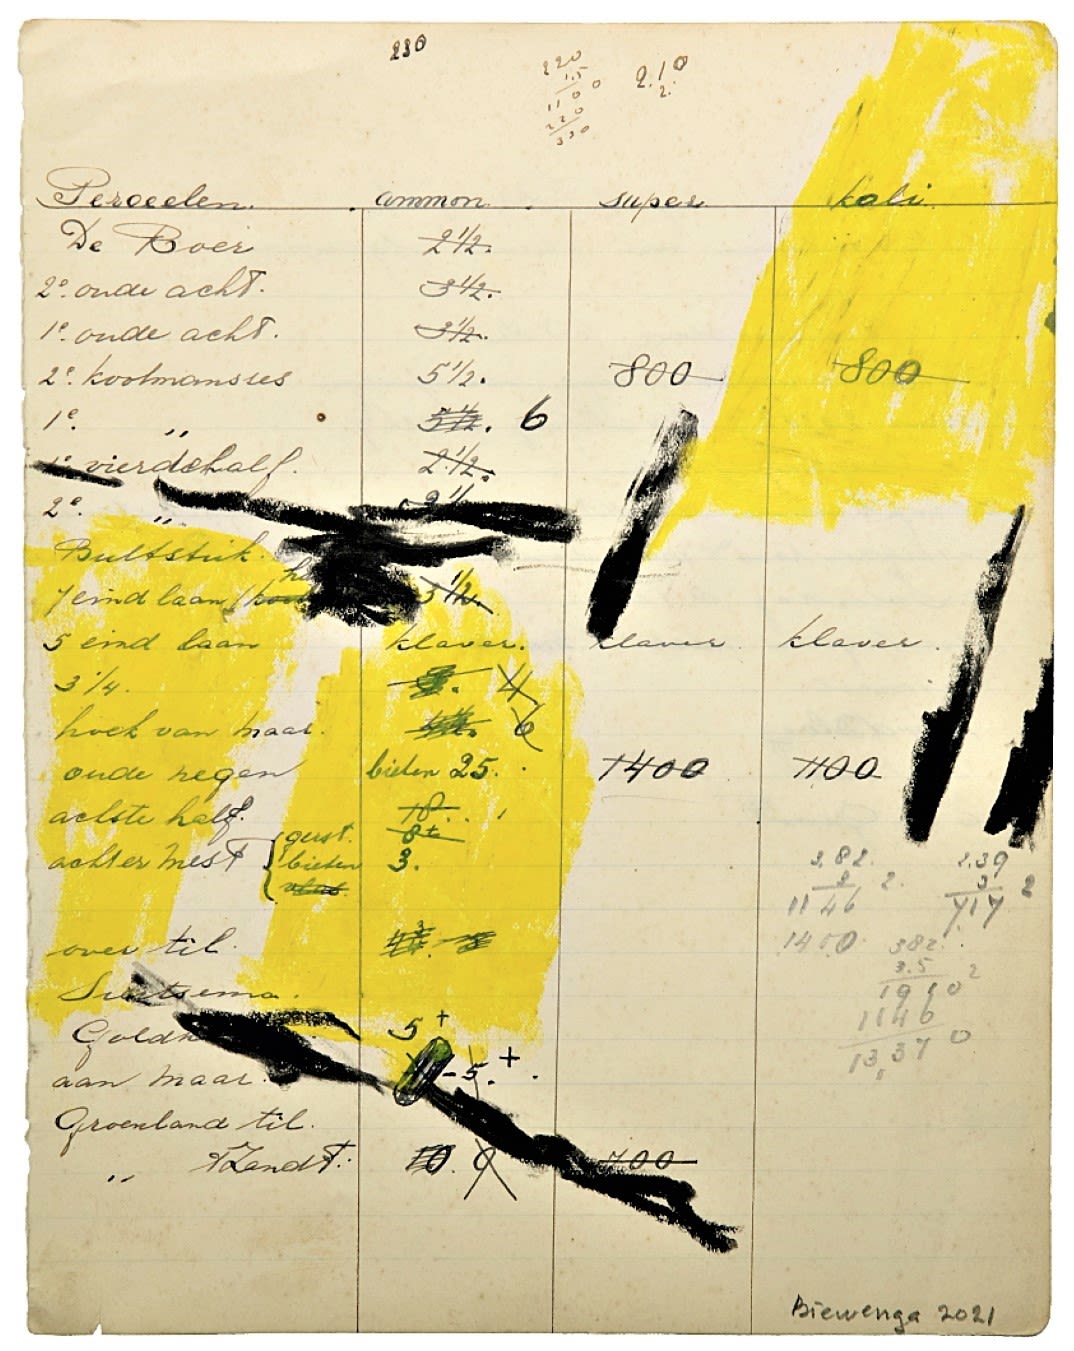 230
220
1.5
1100
220
330
2.10
2.
Percelen. ammon. super. kali.
De Boer 2 1/2.
2e. oude acht. 3 1/2.
1e. oude acht. 3 1/2.
2e. koolmansses 5 1/2. 800 800
1e. ,, 5 1/2. 6
1e vierdehalf. 2 1/2.
2e. ,, 2 1/
Bultstuk.
7 eind laan 3 1/2.
5 eind laan klaver. klaver. klaver.
3 1/4. 4
hoek van maar. 6
oude negen bieten 25. 1400 1100
achste half. 18.
achter mest { gerst. 8+
bieten 3.
vlas
over til.
Sietsema.
Goldh 5+
aan maar. - 5. + .
Groenland til.
,, 't Zandt. 10. 0 700
3.82.
3 2.
1146
1400.
2.39
3 2
717
382.
3.5 2
1910
1146
13,370
Biewenga 2021